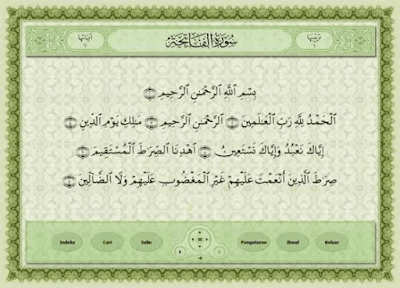 ترتيبها سُورَةُ الفَاتِحَةِ آياتها
بِسْمِ ٱللَّهِ ٱلرَّحْمَٰنِ ٱلرَّحِيمِ
ٱلْحَمْدُ لِلَّهِ رَبِّ ٱلْعَٰلَمِينَ ٱلرَّحْمَٰنِ ٱلرَّحِيمِ مَٰلِكِ يَوْمِ ٱلدِّينِ
إِيَّاكَ نَعْبُدُ وَإِيَّاكَ نَسْتَعِينُ ٱهْدِنَا ٱلصِّرَٰطَ ٱلْمُسْتَقِيمَ
صِرَٰطَ ٱلَّذِينَ أَنْعَمْتَ عَلَيْهِمْ غَيْرِ ٱلْمَغْضُوبِ عَلَيْهِمْ وَلَا ٱلضَّآلِّينَ
Indeks Cari Salin Pengaturan Ihwal Keluar